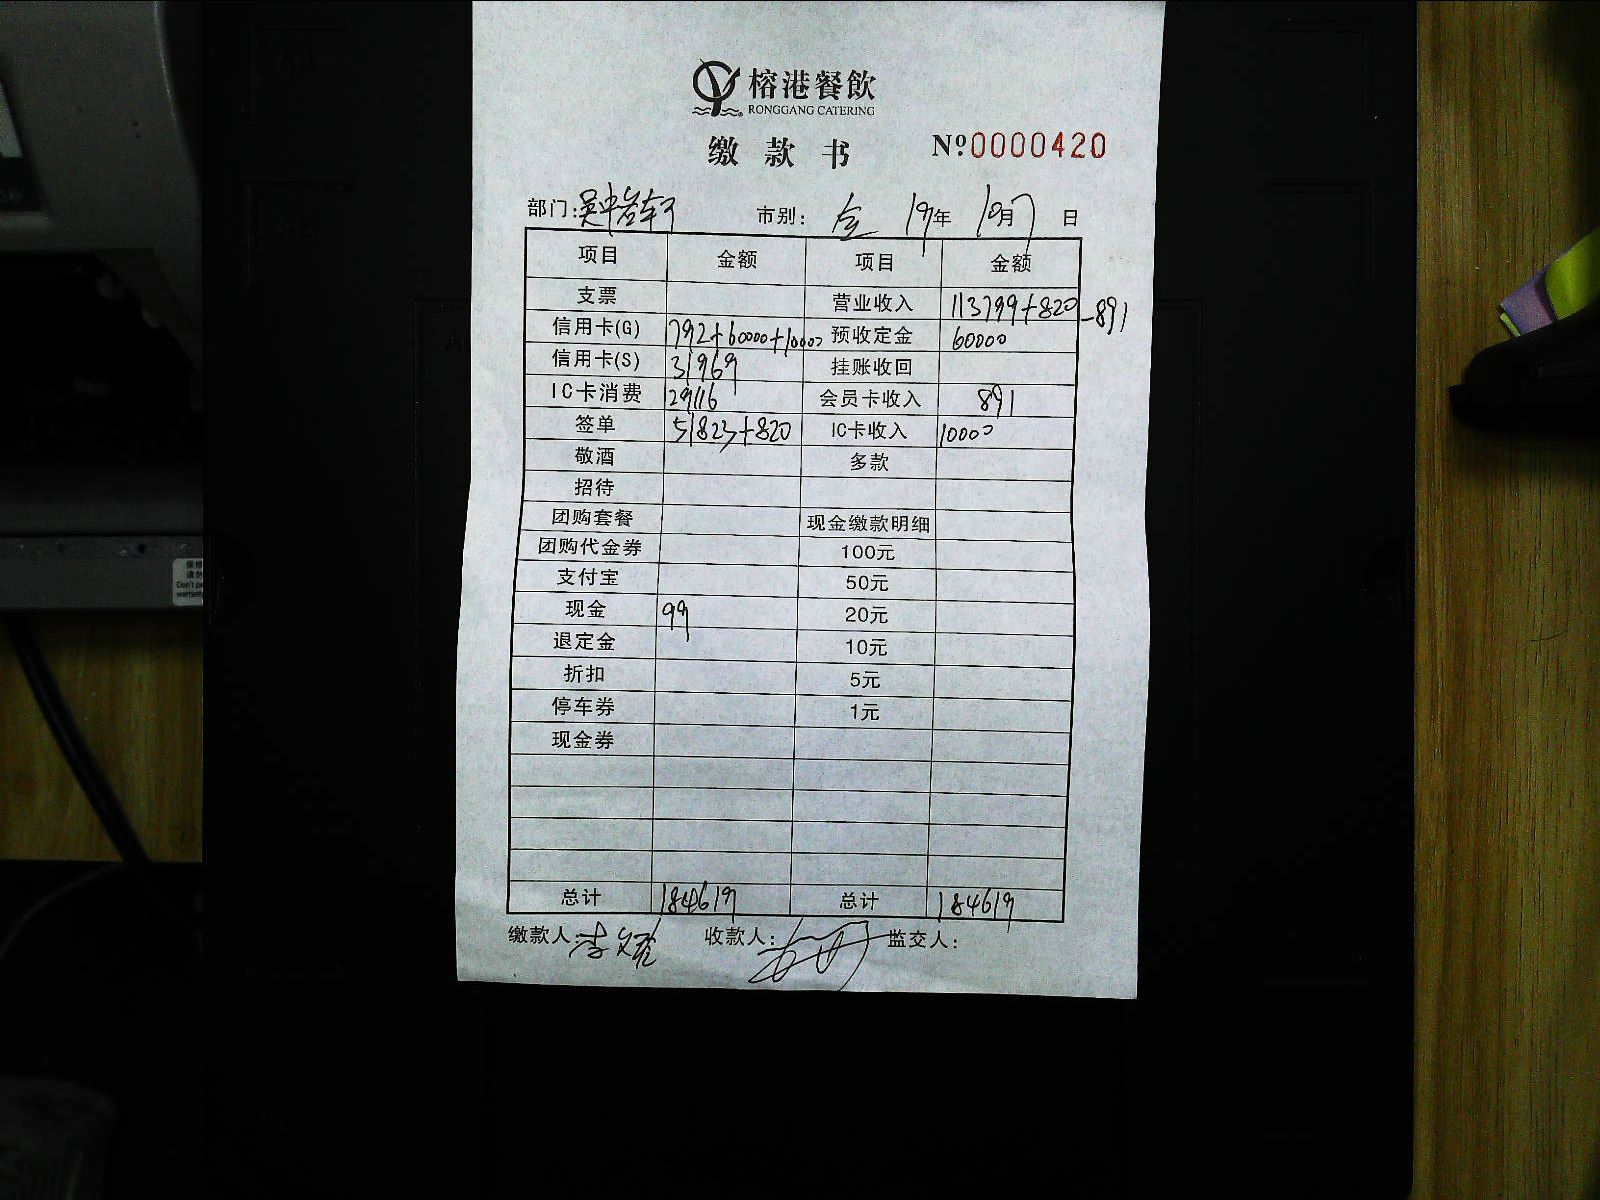 榕港餐飲
RONGGANG CATERING
缴款书 Nº0000420
部门: 吴中 市别: 全 19年 10月7日
项目 金额 项目 金额
支票 营业收入 113799+820-891
信用卡(G) 792+60000+10000 预收定金 60000
信用卡(S) 31969 挂账收回
IC卡消费 29116 会员卡收入 891
签单 51823+820 IC卡收入 10000
敬酒 多款
招待
团购套餐 现金缴款明细
团购代金券 100元
支付宝 50元
现金 99 20元
退定金 10元
折扣 5元
停车券 1元
现金券
总计 184619 总计 184619
缴款人: 李 收款人: 监交人: